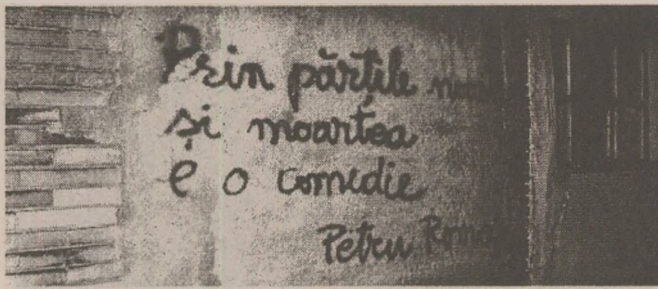 Prin părțile
și moartea
e o comedie
Petru